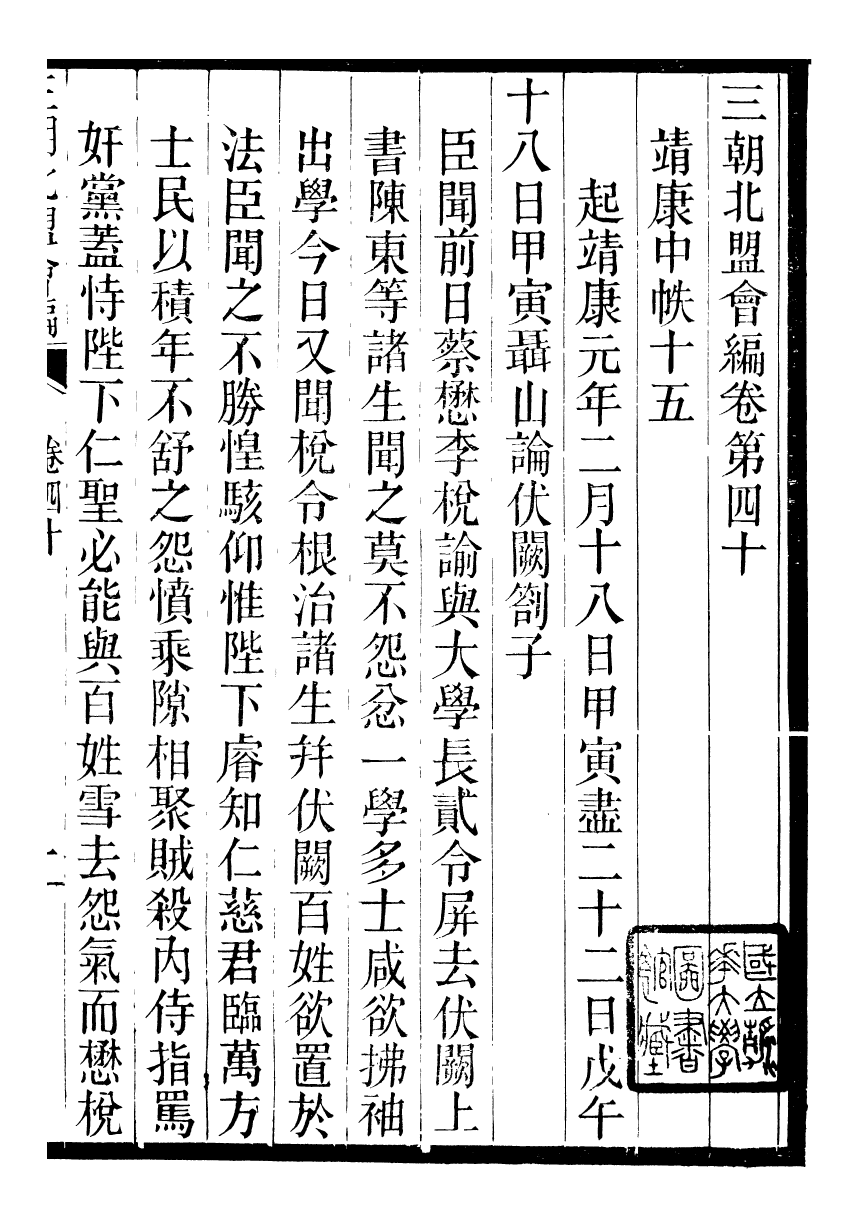 三朝北盟會編卷第四十
靖康中帙十五
起靖康元年二月十八日甲寅盡二十二日戊午
十八日甲寅聶山論伏闕劄子
臣聞前日蔡懋李梲諭與大學長貳令屏去伏闕上
書陳東等諸生聞之莫不怨忿一學多士咸欲拂袖
出學今日又聞梲令根治諸生幷伏闕百姓欲置於
法臣聞之不勝惶駭仰惟陛下睿知仁慈君臨萬方
士民以積年不舒之怨憤乘隙相聚賊殺內侍指罵
奸黨蓋恃陛下仁聖必能與百姓雪去怨氣而懋梲
三朝北盟會編
卷四十
一
國立清
華大學
圖書
館藏